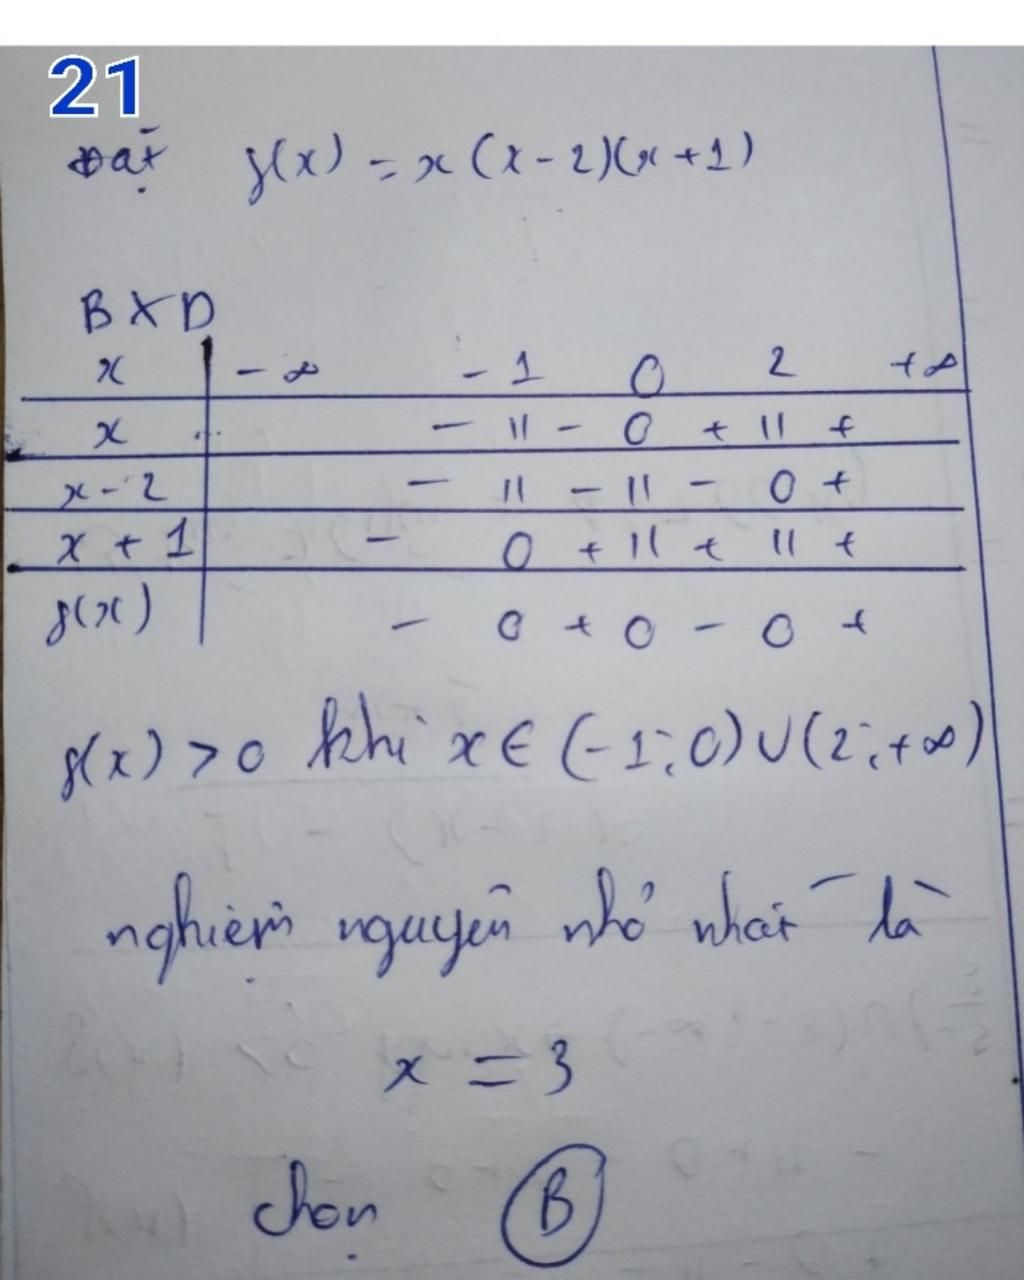 21
Đặt f(x) = x(x-2)(x+1)
BXD
x -∞ -1 0 2 +∞
x - || - 0 + || +
x-2 - || - || - 0 +
x+1 - 0 + || + || +
f(x) - 0 + 0 - 0 +
f(x) > 0 khi x ∈ (-1;0) ∪ (2;+∞)
nghiệm nguyên nhỏ nhất là
x = 3
chọn B